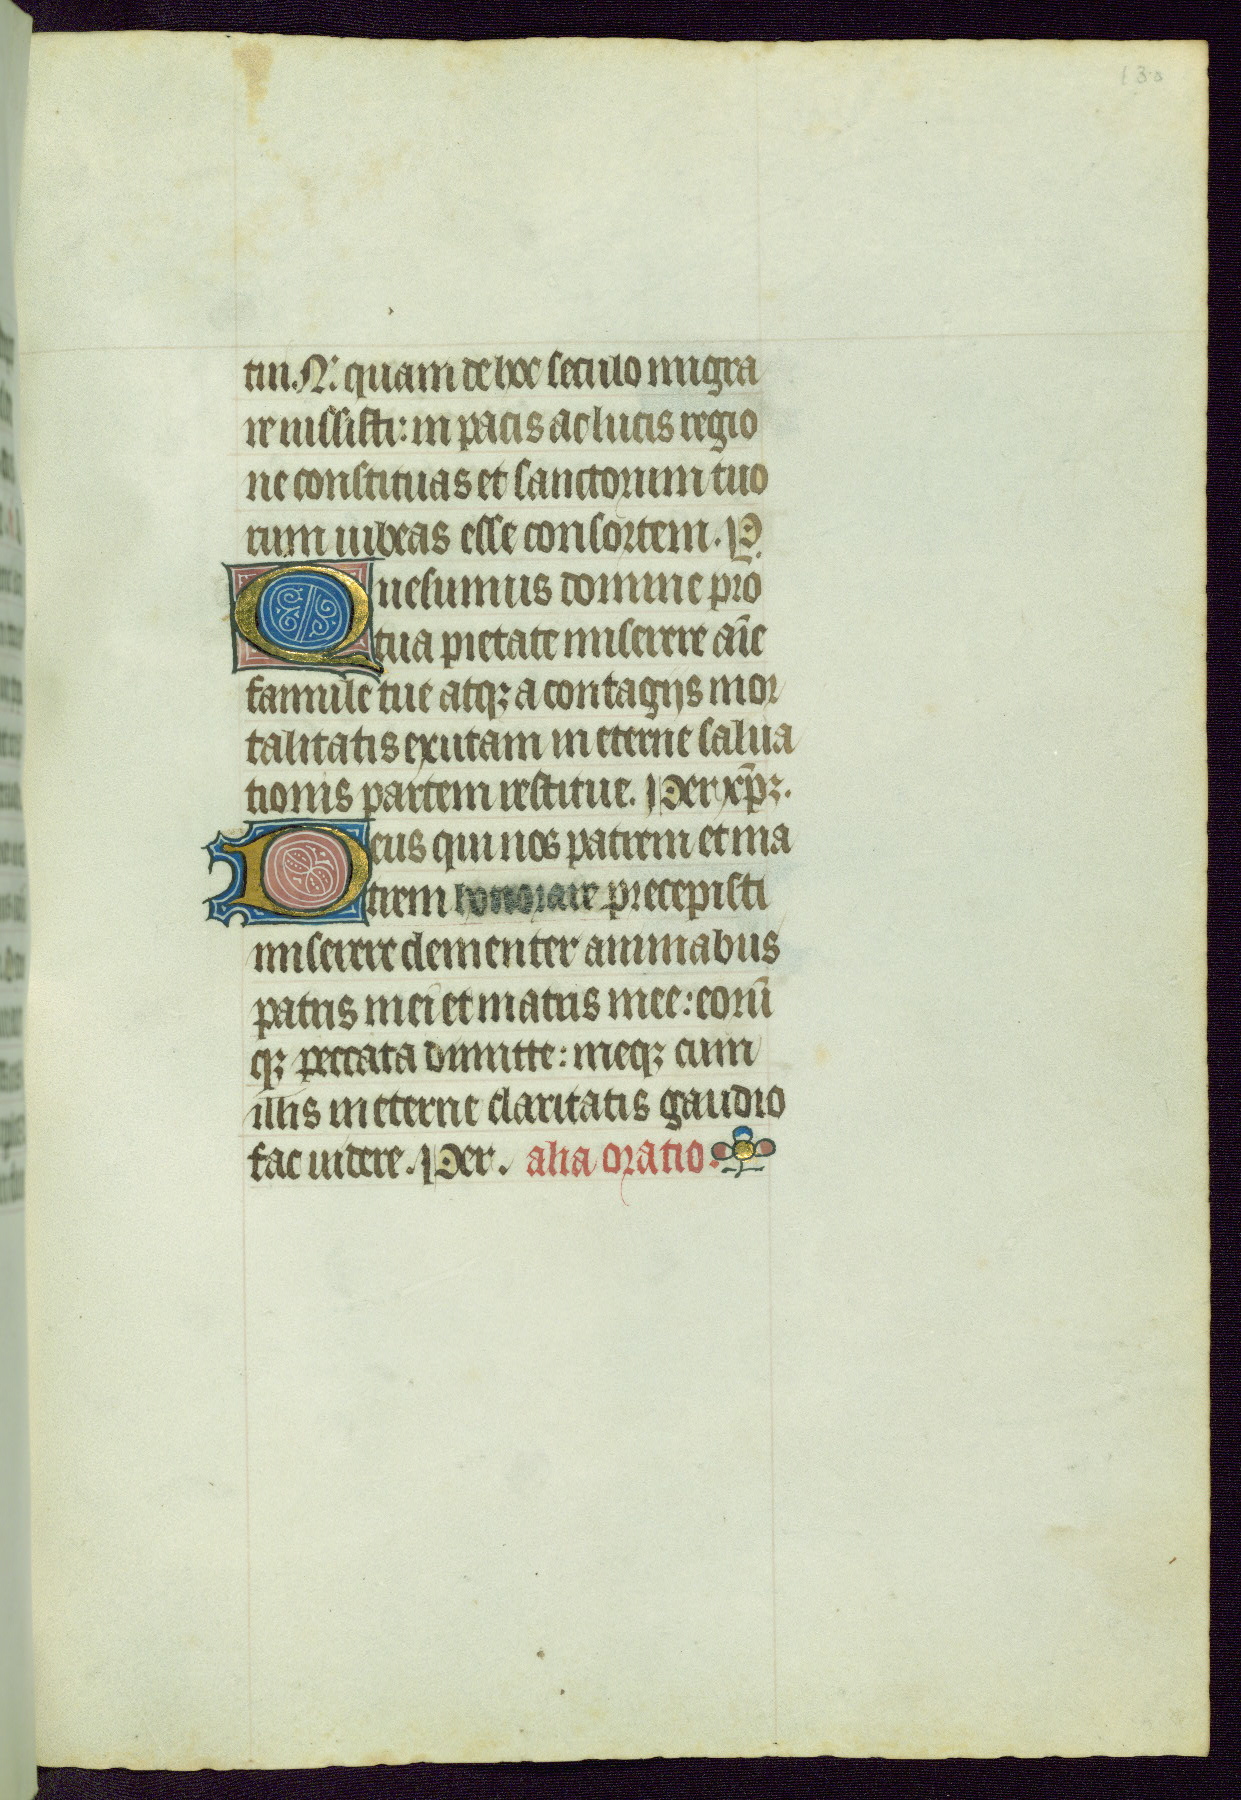 130
tui. N. quam de hoc seculo migra
re iussisti: in pacis ac lucis regio
ne constituas et sanctorum tuo
rum iubeas esse consortem. P.
Quesumus domine pro
tua pietate miserere aīe
famule tue atqꝫ a contagijs mor
talitatis exutam in eterne salua
tionis partem restitue. Per xp̄ꝫ.
Deus qui nos patrem et ma
trem honorare precepisti
miserere clementer animabus
patris mei et matris mee: eorū
qꝫ peccata dimitte: meqꝫ cum
illis in eterne claritatis gaudio
fac uidere. Per. alia oratio.